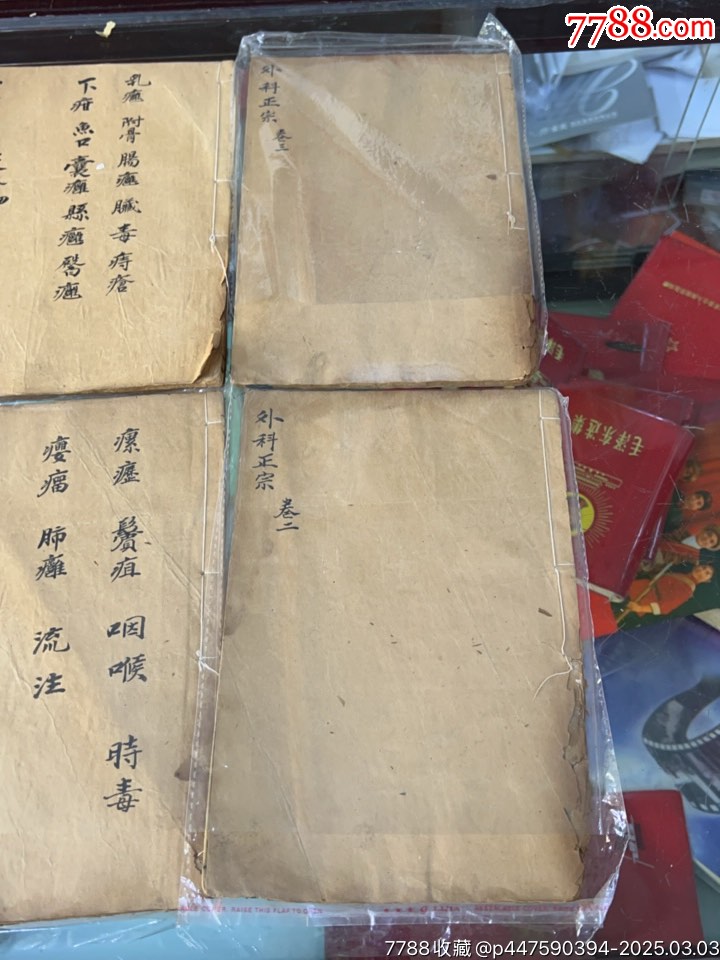 7788.com
乳癰 附骨 腸癰 臟毒 痔瘡
下疳 魚口 囊癰 懸癰 臀癰
外科正宗 卷三
瘰癧 鬢疽 咽喉 時毒
癭瘤 肺癰 流注
外科正宗 卷二
毛泽东选集
7788收藏 @p447590394-2025.03.03